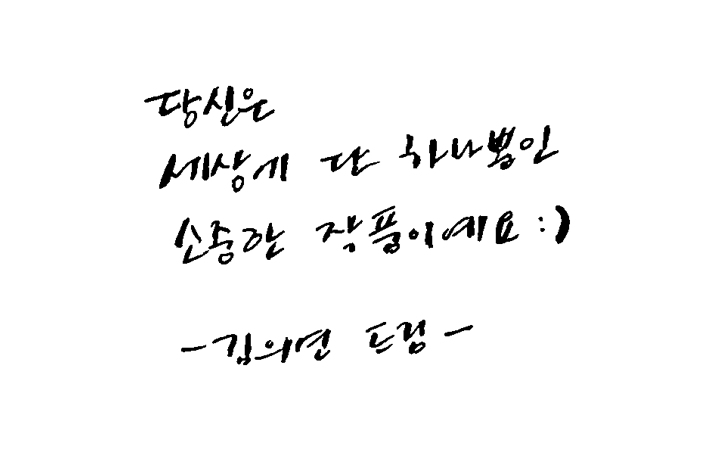 당신은
세상에 단 하나뿐인
소중한 작품이예요 :)
- 김의연 드림 -